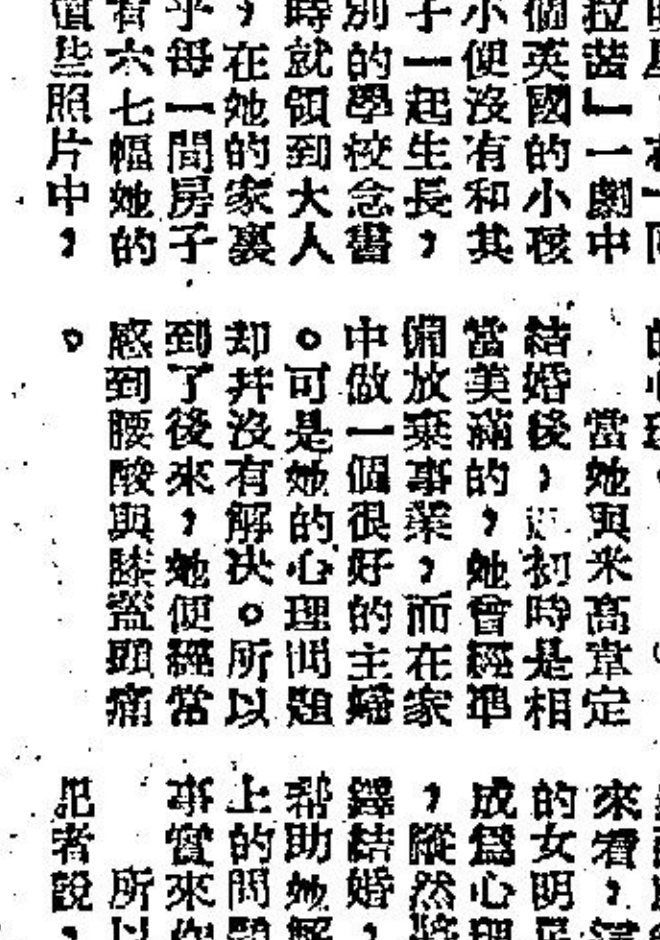 拉茜」一劇中
個英國的小孩
小便沒有和其
子一起生長，
別的學校念書
時就領到大人
，在她的家裏
乎每一間房子
有六七幅她的
這些照片中，
當她與米高韋定
結婚後，起初時是相
當美滿的，她曾經準
備放棄事業，而在家
中做一個很好的主婦
。可是她的心理問題
却并沒有解决。所以
到了後來，她便經常
感到腰酸與膝蓋頭痛
。
來看，
的女明星
成為心理
，縱然
鐸結婚，
幫助她解
上的問題
事實來
所以
記者說，